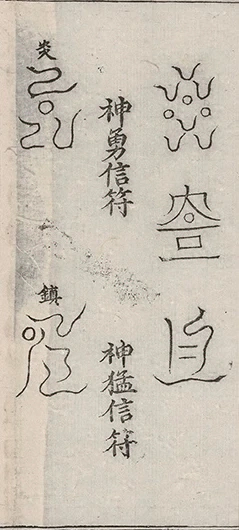 神勇信符
神猛信符
炎
鎮